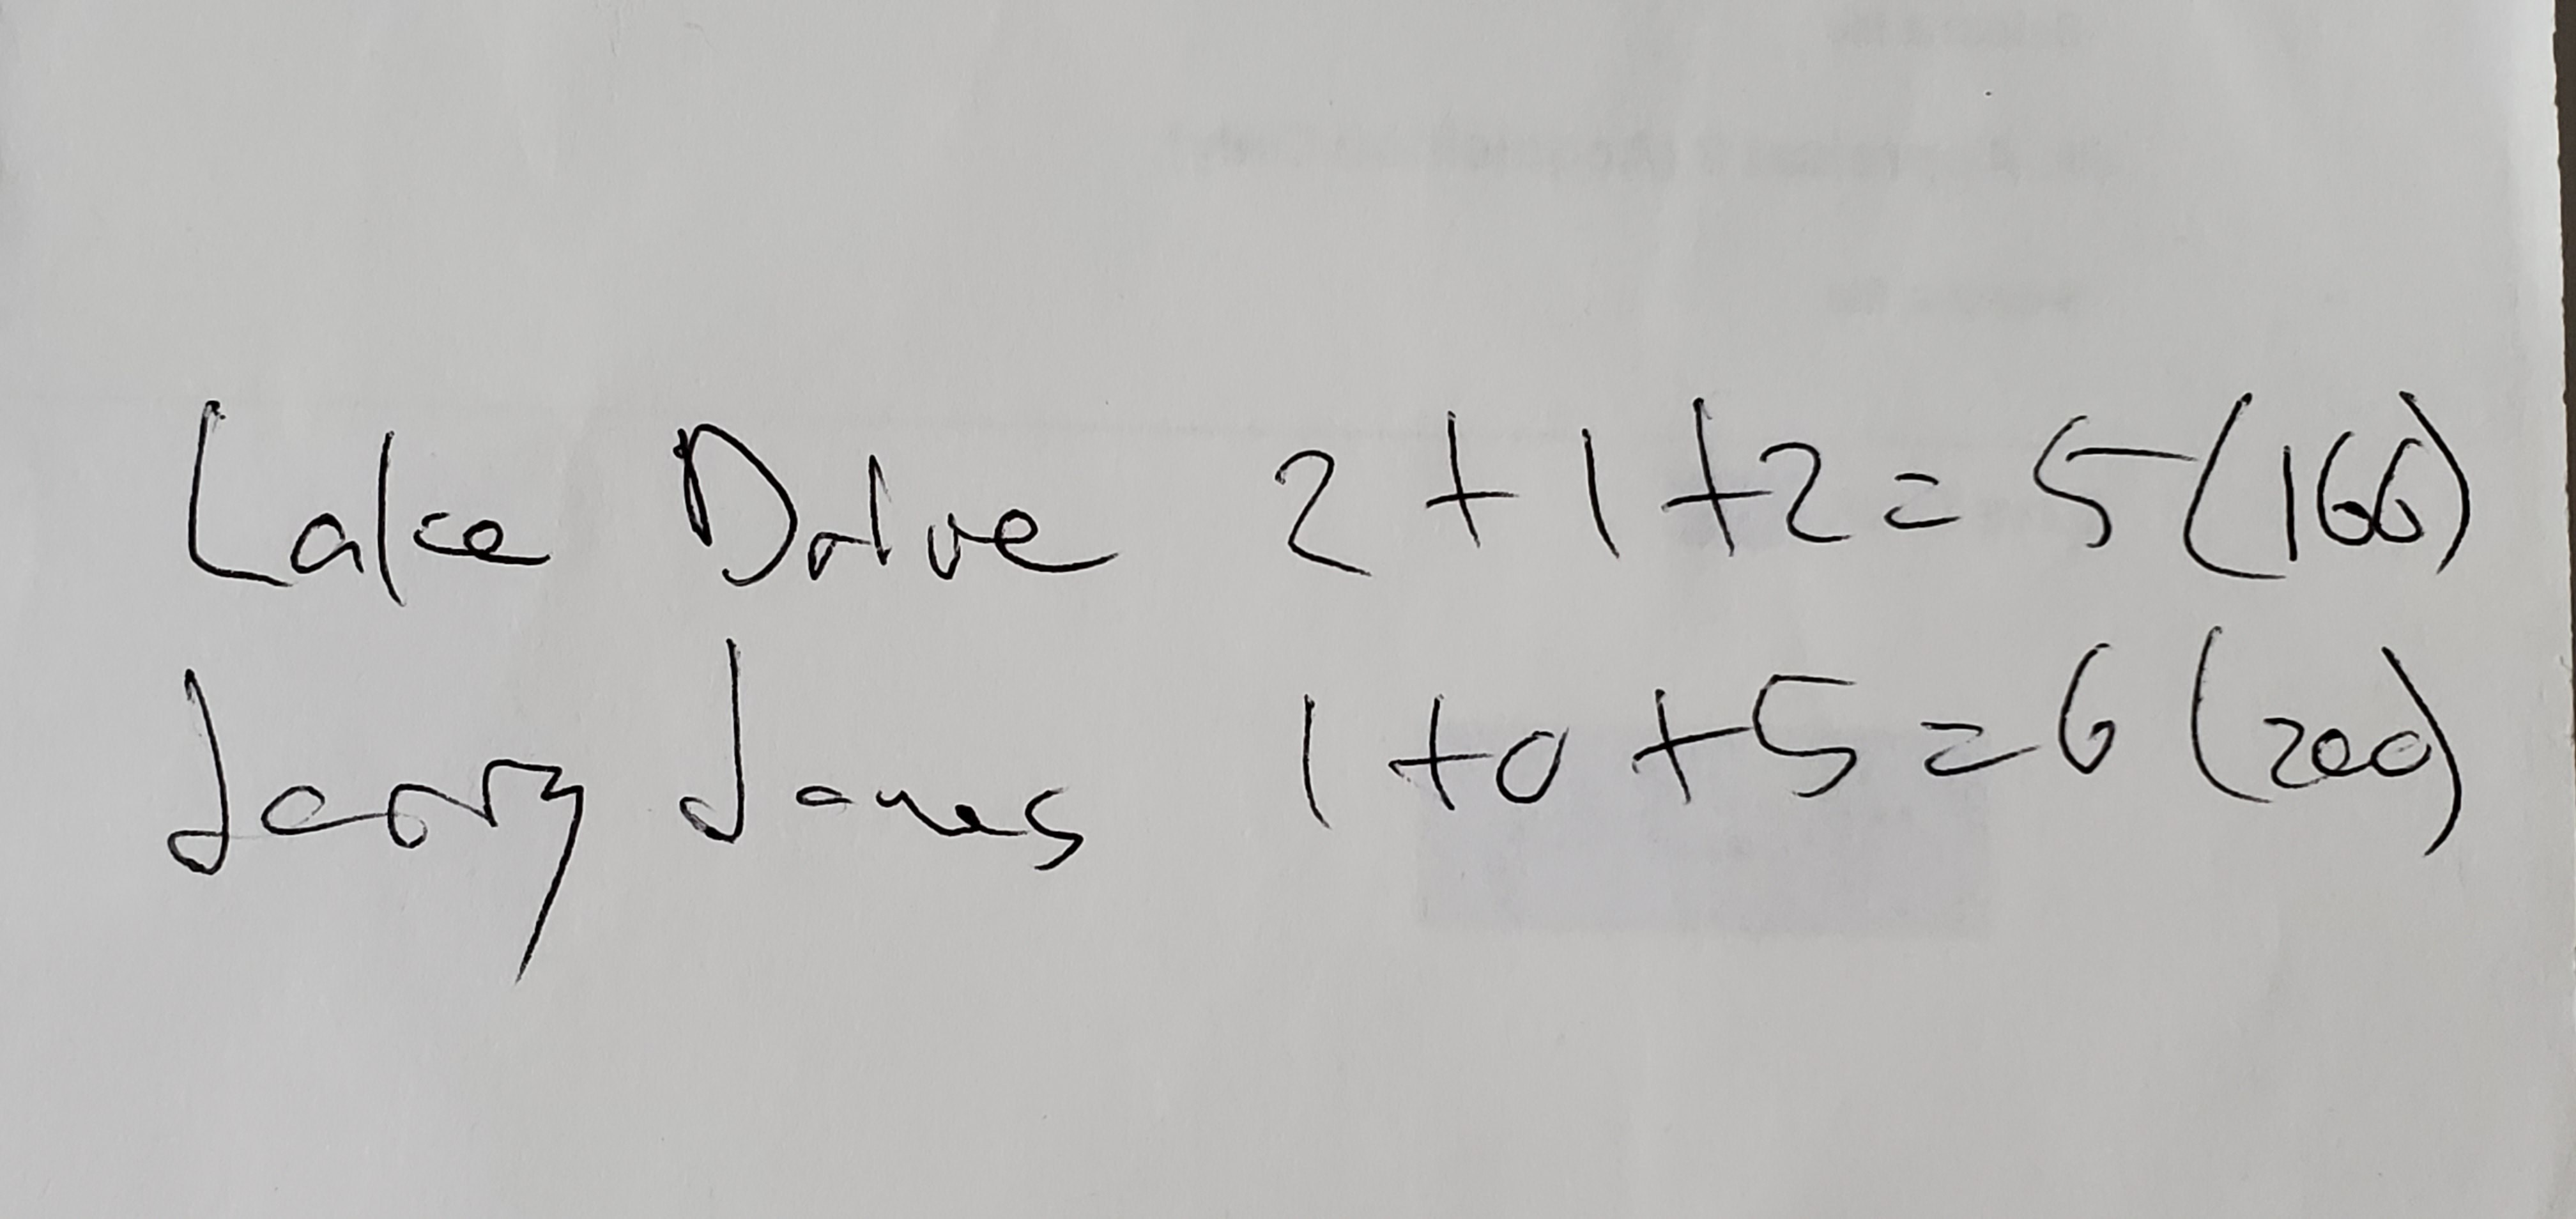 Lake Drive 2 + 1 + 2 = 5 (166)
Jerry Jones 1 + 0 + 5 = 6 (200)